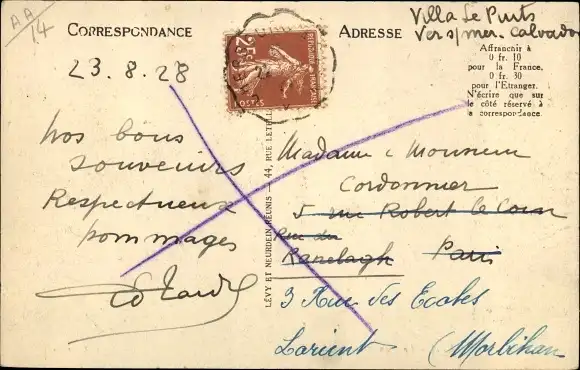 AA
14
CORRESPONDANCE
ADRESSE
Villa Le Puits
Ver s/mer. Calvados
Affranchir à
0 fr. 10
pour la France.
0 fr. 30
pour l'Etranger.
N'écrire que sur
le côté réservé à
la correspondance.
25c
REPUBLIQUE FRANÇAISE
POSTES
23.8.28
Nos bons
souvenirs
Respectueux
hommages
LÉVY ET NEURDEIN RÉUNIS — 44, RUE LETELL
Madame & Monsieur
Cordonnier
5 rue Robert le Coin
Rue du
Ranelagh Paris
3 Rue des Ecoles
Lorient (Morbihan